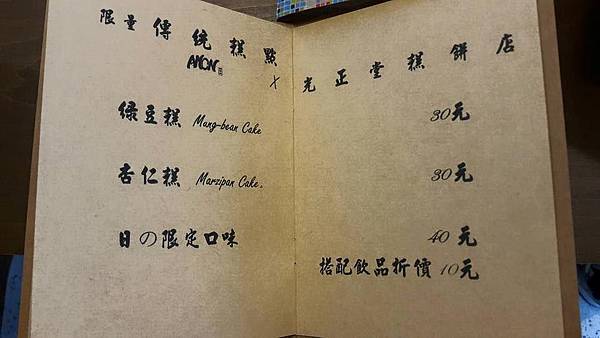 限量傳統糕點
ANON
x 光正堂糕餅店
绿豆糕 Mung-bean Cake 30元
杏仁糕 Marzipan Cake. 30元
日の限定口味 40元
搭配飲品折價10元